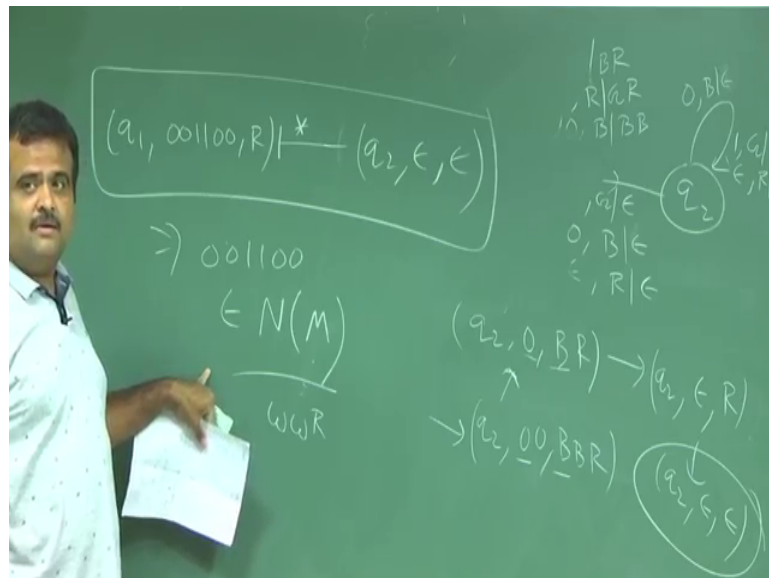 (q₁, 001100, R) |—* (q₂, ∈, ∈)
⇒ 001100
∈ N(M)
ωωR
|BR
, R|GR
, B|BB
0, B|∈
1, G|
∈, R|
q₂
, G|∈
0, B|∈
∈, R|∈
(q₂, 0, BR) → (q₂, ∈, R)
→ (q₂, 00, BBR)
(q₂, ∈, ∈)